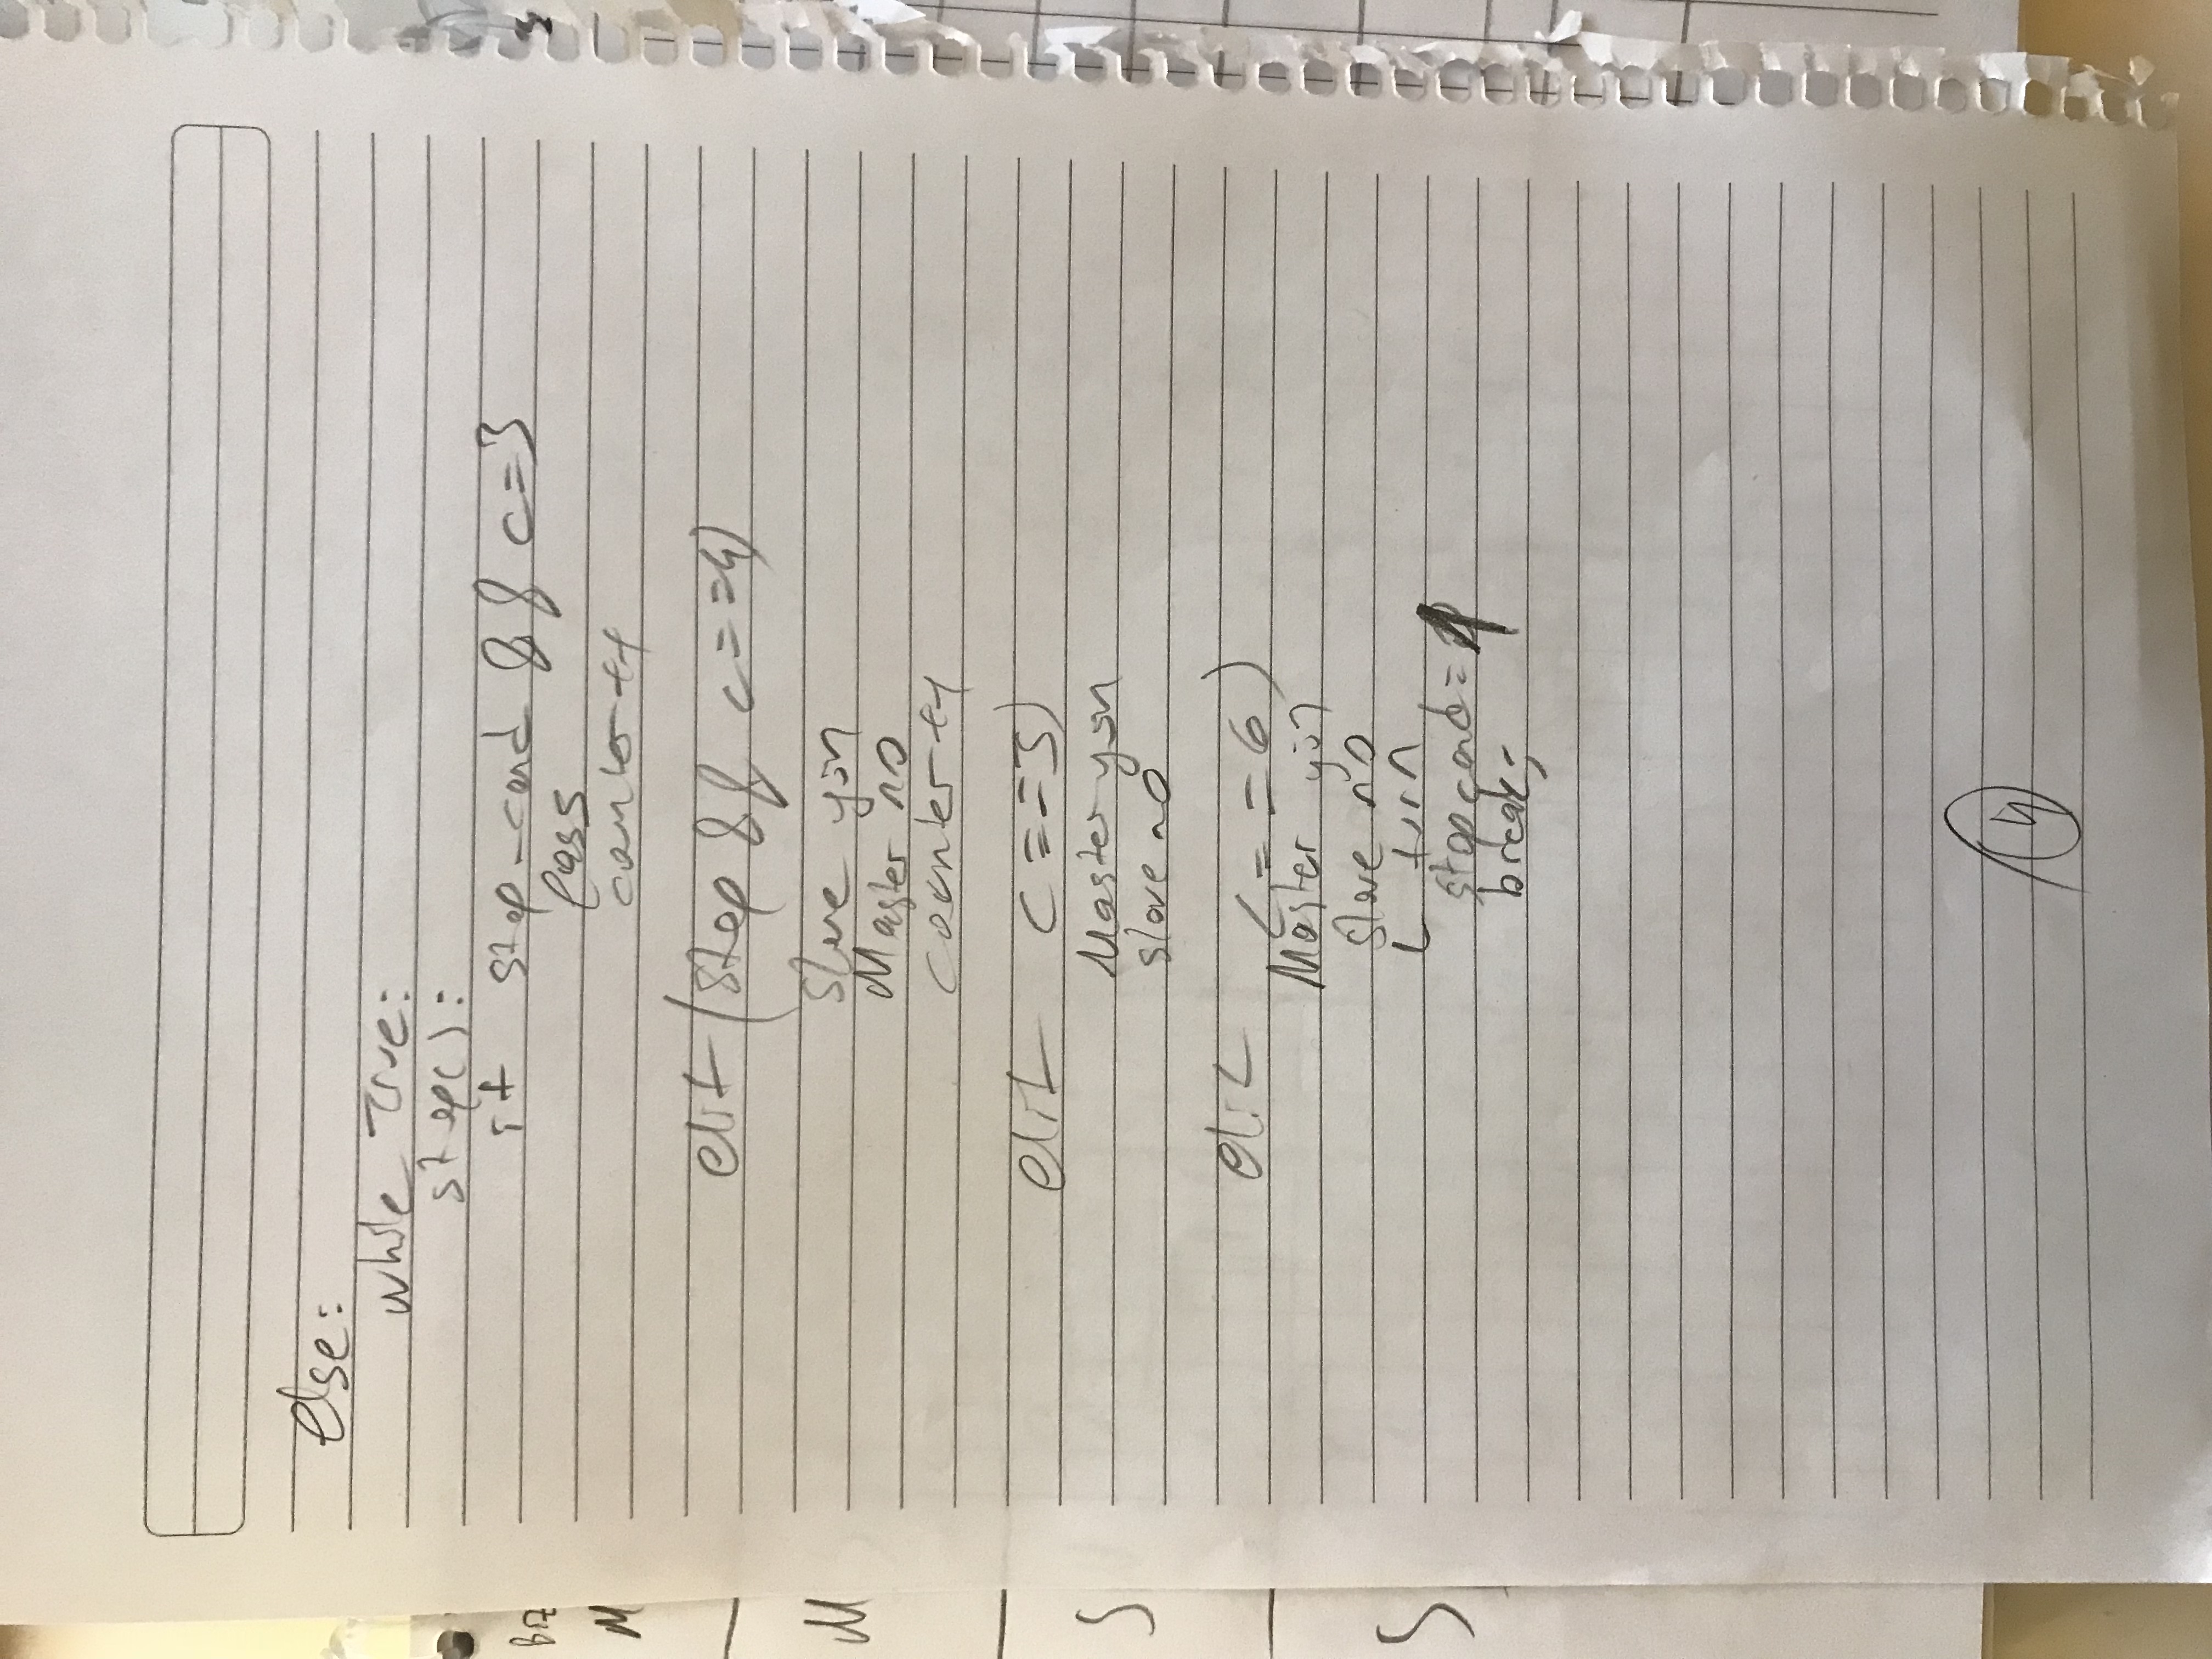 Else:
while True:
step():
if stop-card && c=3
pass
counter++
elif (stop && c==4)
slave yön
Master no
counter++
elif c==5)
Master yön
slave no
elif c==6)
Master yön
slave no
L turn
stopcard=1
break;
4
Biz
M
M
S
S